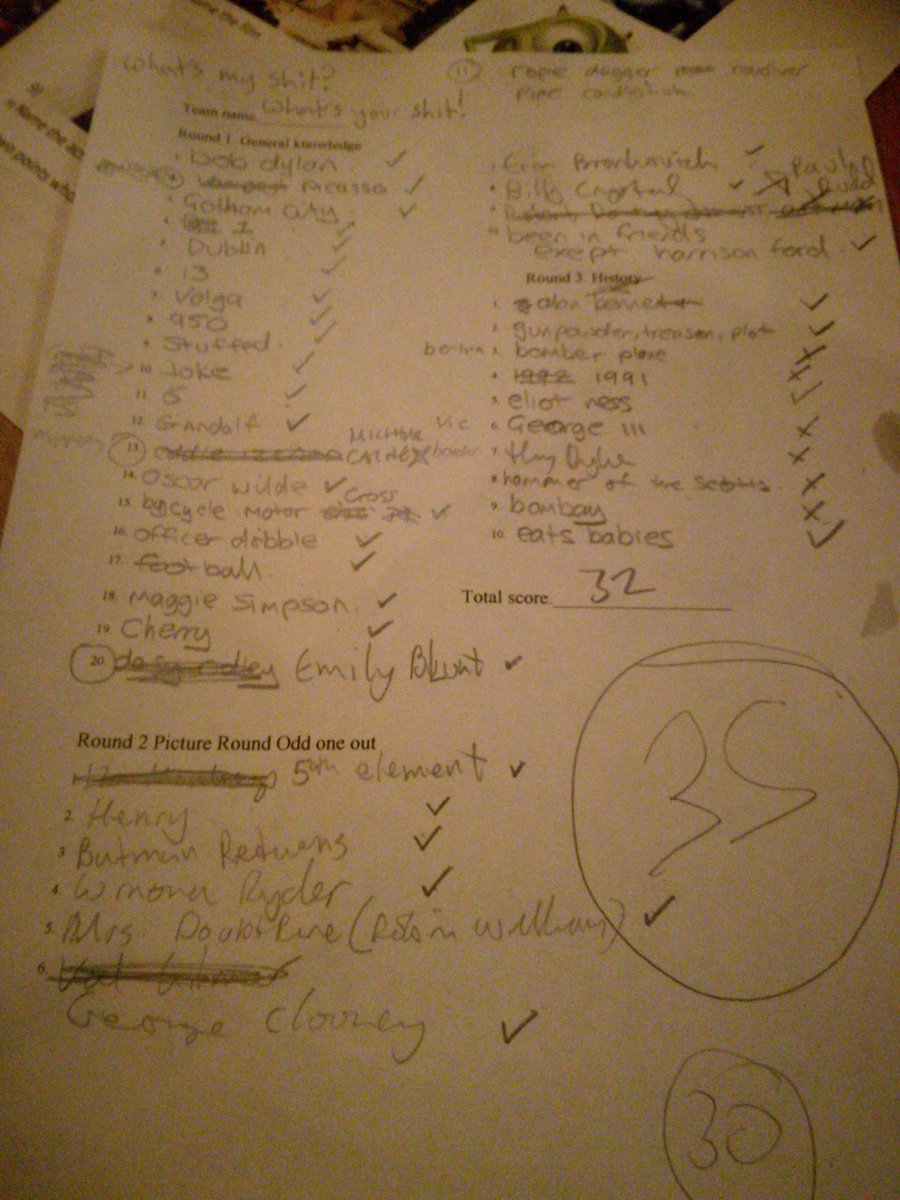 What's my shit?
Team name What's your shit!
Round 1. General knowledge
1. bob dylan
2. Picasso
3. Gotham City
4. 1
5. Dublin
6. 13
7. Volga
8. 950
9. Stuffed.
10. Joke
11. 6
12. Gandalf
13. MICHAEL CAINE
14. Oscar Wilde
15. bycycle motor Cross
16. officer dibble
17. football.
18. Maggie Simpson.
19. Cherry
20. Emily Blunt
Round 2 Picture Round Odd one out
5th element
2. Henry
3 Batman Returns
4 Winona Ryder
5. Mrs. Doubtfire (Robin Williams)
6.
George Clooney
11 rope dagger revolver
PIPE candlestick
7. Erin Brockovich
8 Billy Crystal Paul Rudd
9
10 been in friends
exept harrison ford.
Round 3. History
1. alan bennett
2. gunpowder, treason, plot
3. bomber plane
4. 1992 1991
5. eliot ness
6. George III
7.
8. hammer of the
9. bombay
10. eats babies
Total score. 32
35
30
name the film
Name the
two points